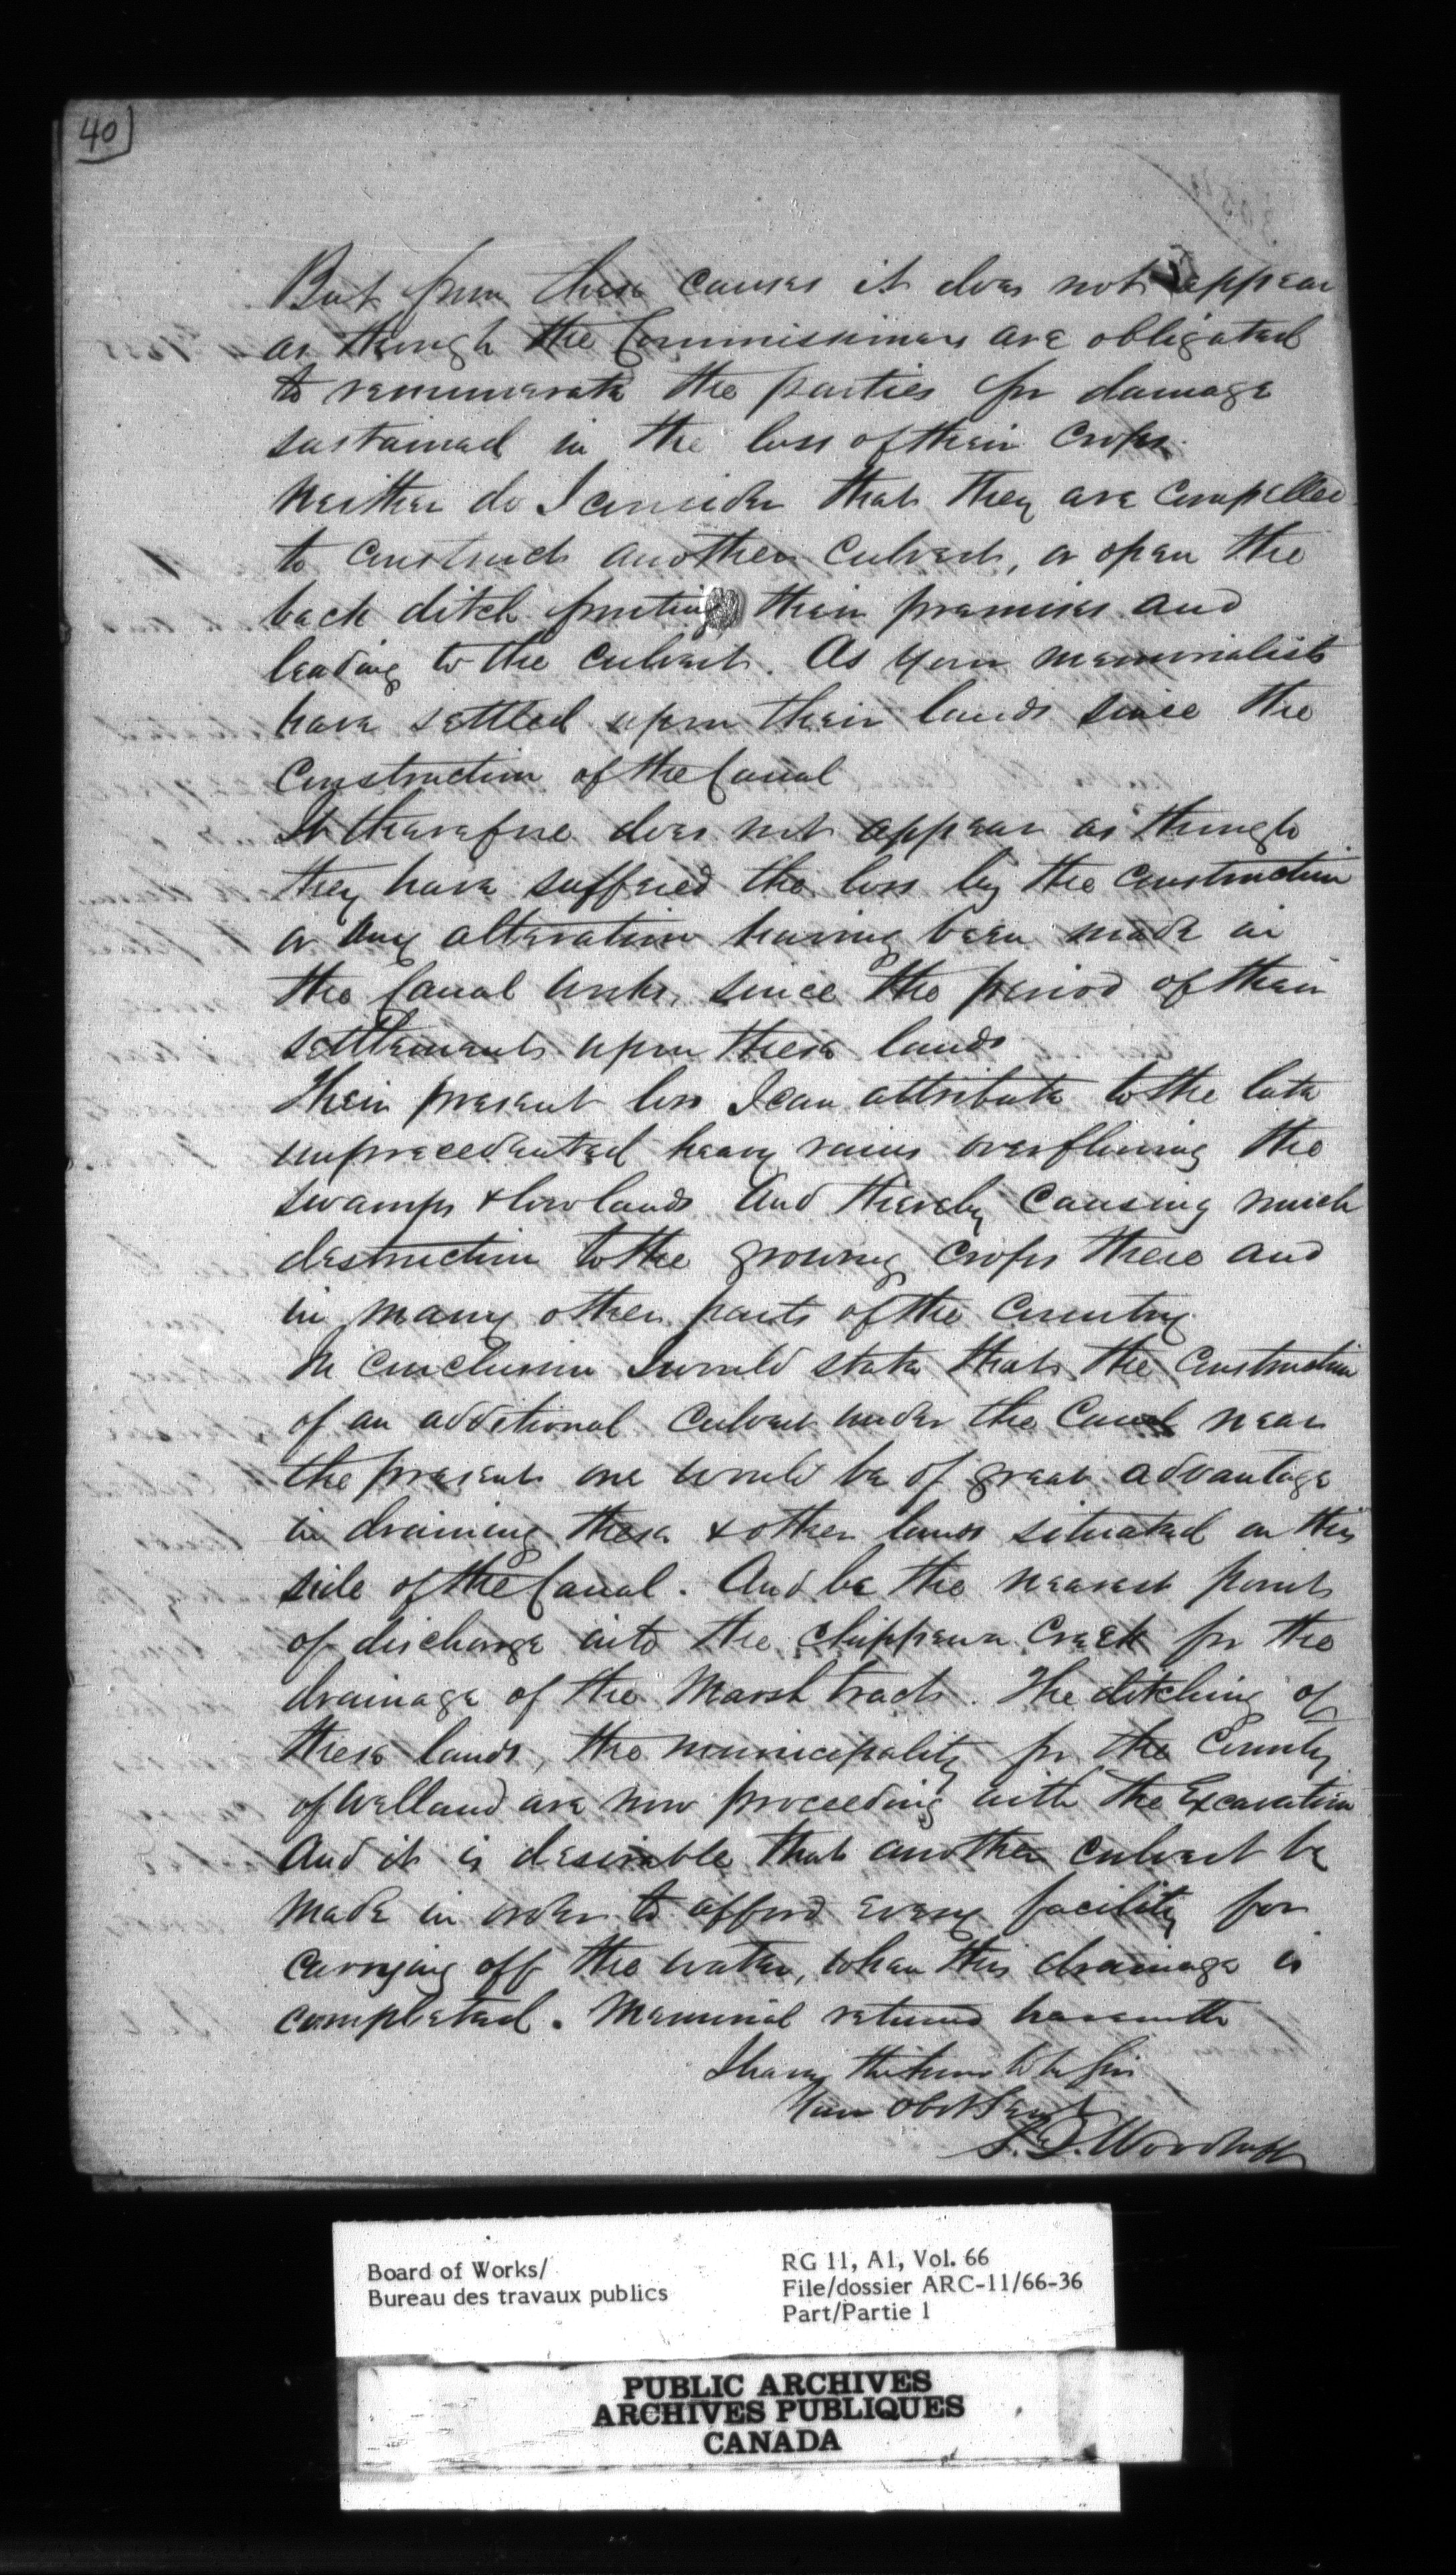 40
But from these causes it does not appear
as though the Commissioners are obligated
to remunerate the parties for damage
sustained in the loss of their crops.
Neither do I consider that they are compelled
to construct another culvert, or open the
back ditch fronting their premises and
leading to the culvert. As your memorialists
have settled upon their lands since the
Construction of the Canal
It therefore does not appear as though
they have suffered the loss by the construction
or any alteration having been made in
the Canal works, since the period of their
settlements upon these lands
Their present loss I can attribute to the late
unprecedented heavy rains overflowing the
swamps & low lands and thereby causing much
destruction to the growing crops there and
in many other parts of the Country
In conclusion I would state that the Construction
of an additional culvert under the Canal near
the present one would be of great advantage
in draining these & other lands situated on this
side of the Canal. And be the nearest point
of discharge into the Chippewa Creek for the
drainage of the Marsh tracts. The ditching of
these lands, the municipality for the County
of Welland are now proceeding with the Excavation
And it is desirable that another culvert be
made in order to afford every facility for
carrying off the water, when this drainage is
completed. Memorial returned herewith
I have the honor to be Sir
Your Obt Servt
S. D. Woodruff
Board of Works/
Bureau des travaux publics
RG 11, A1, Vol. 66
File/dossier ARC-11/66-36
Part/Partie 1
PUBLIC ARCHIVES
ARCHIVES PUBLIQUES
CANADA